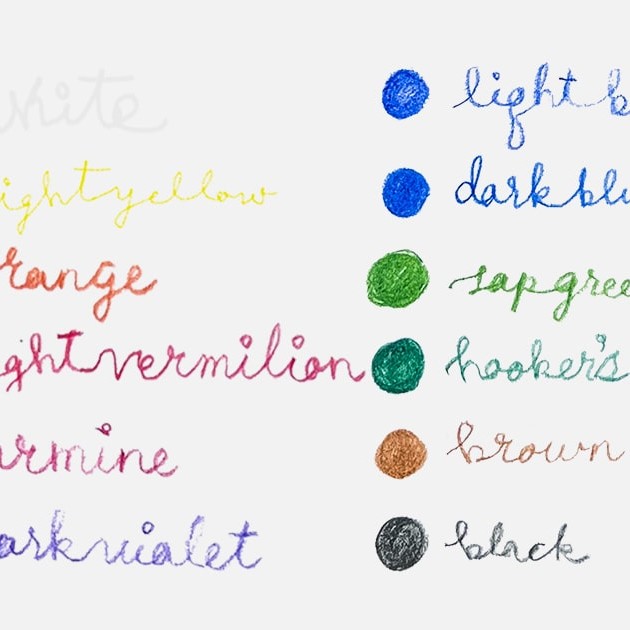 white
ight yellow
range
ght vermilion
armine
ark vialet
light b
dark blu
sap gree
hooker's
brown
black